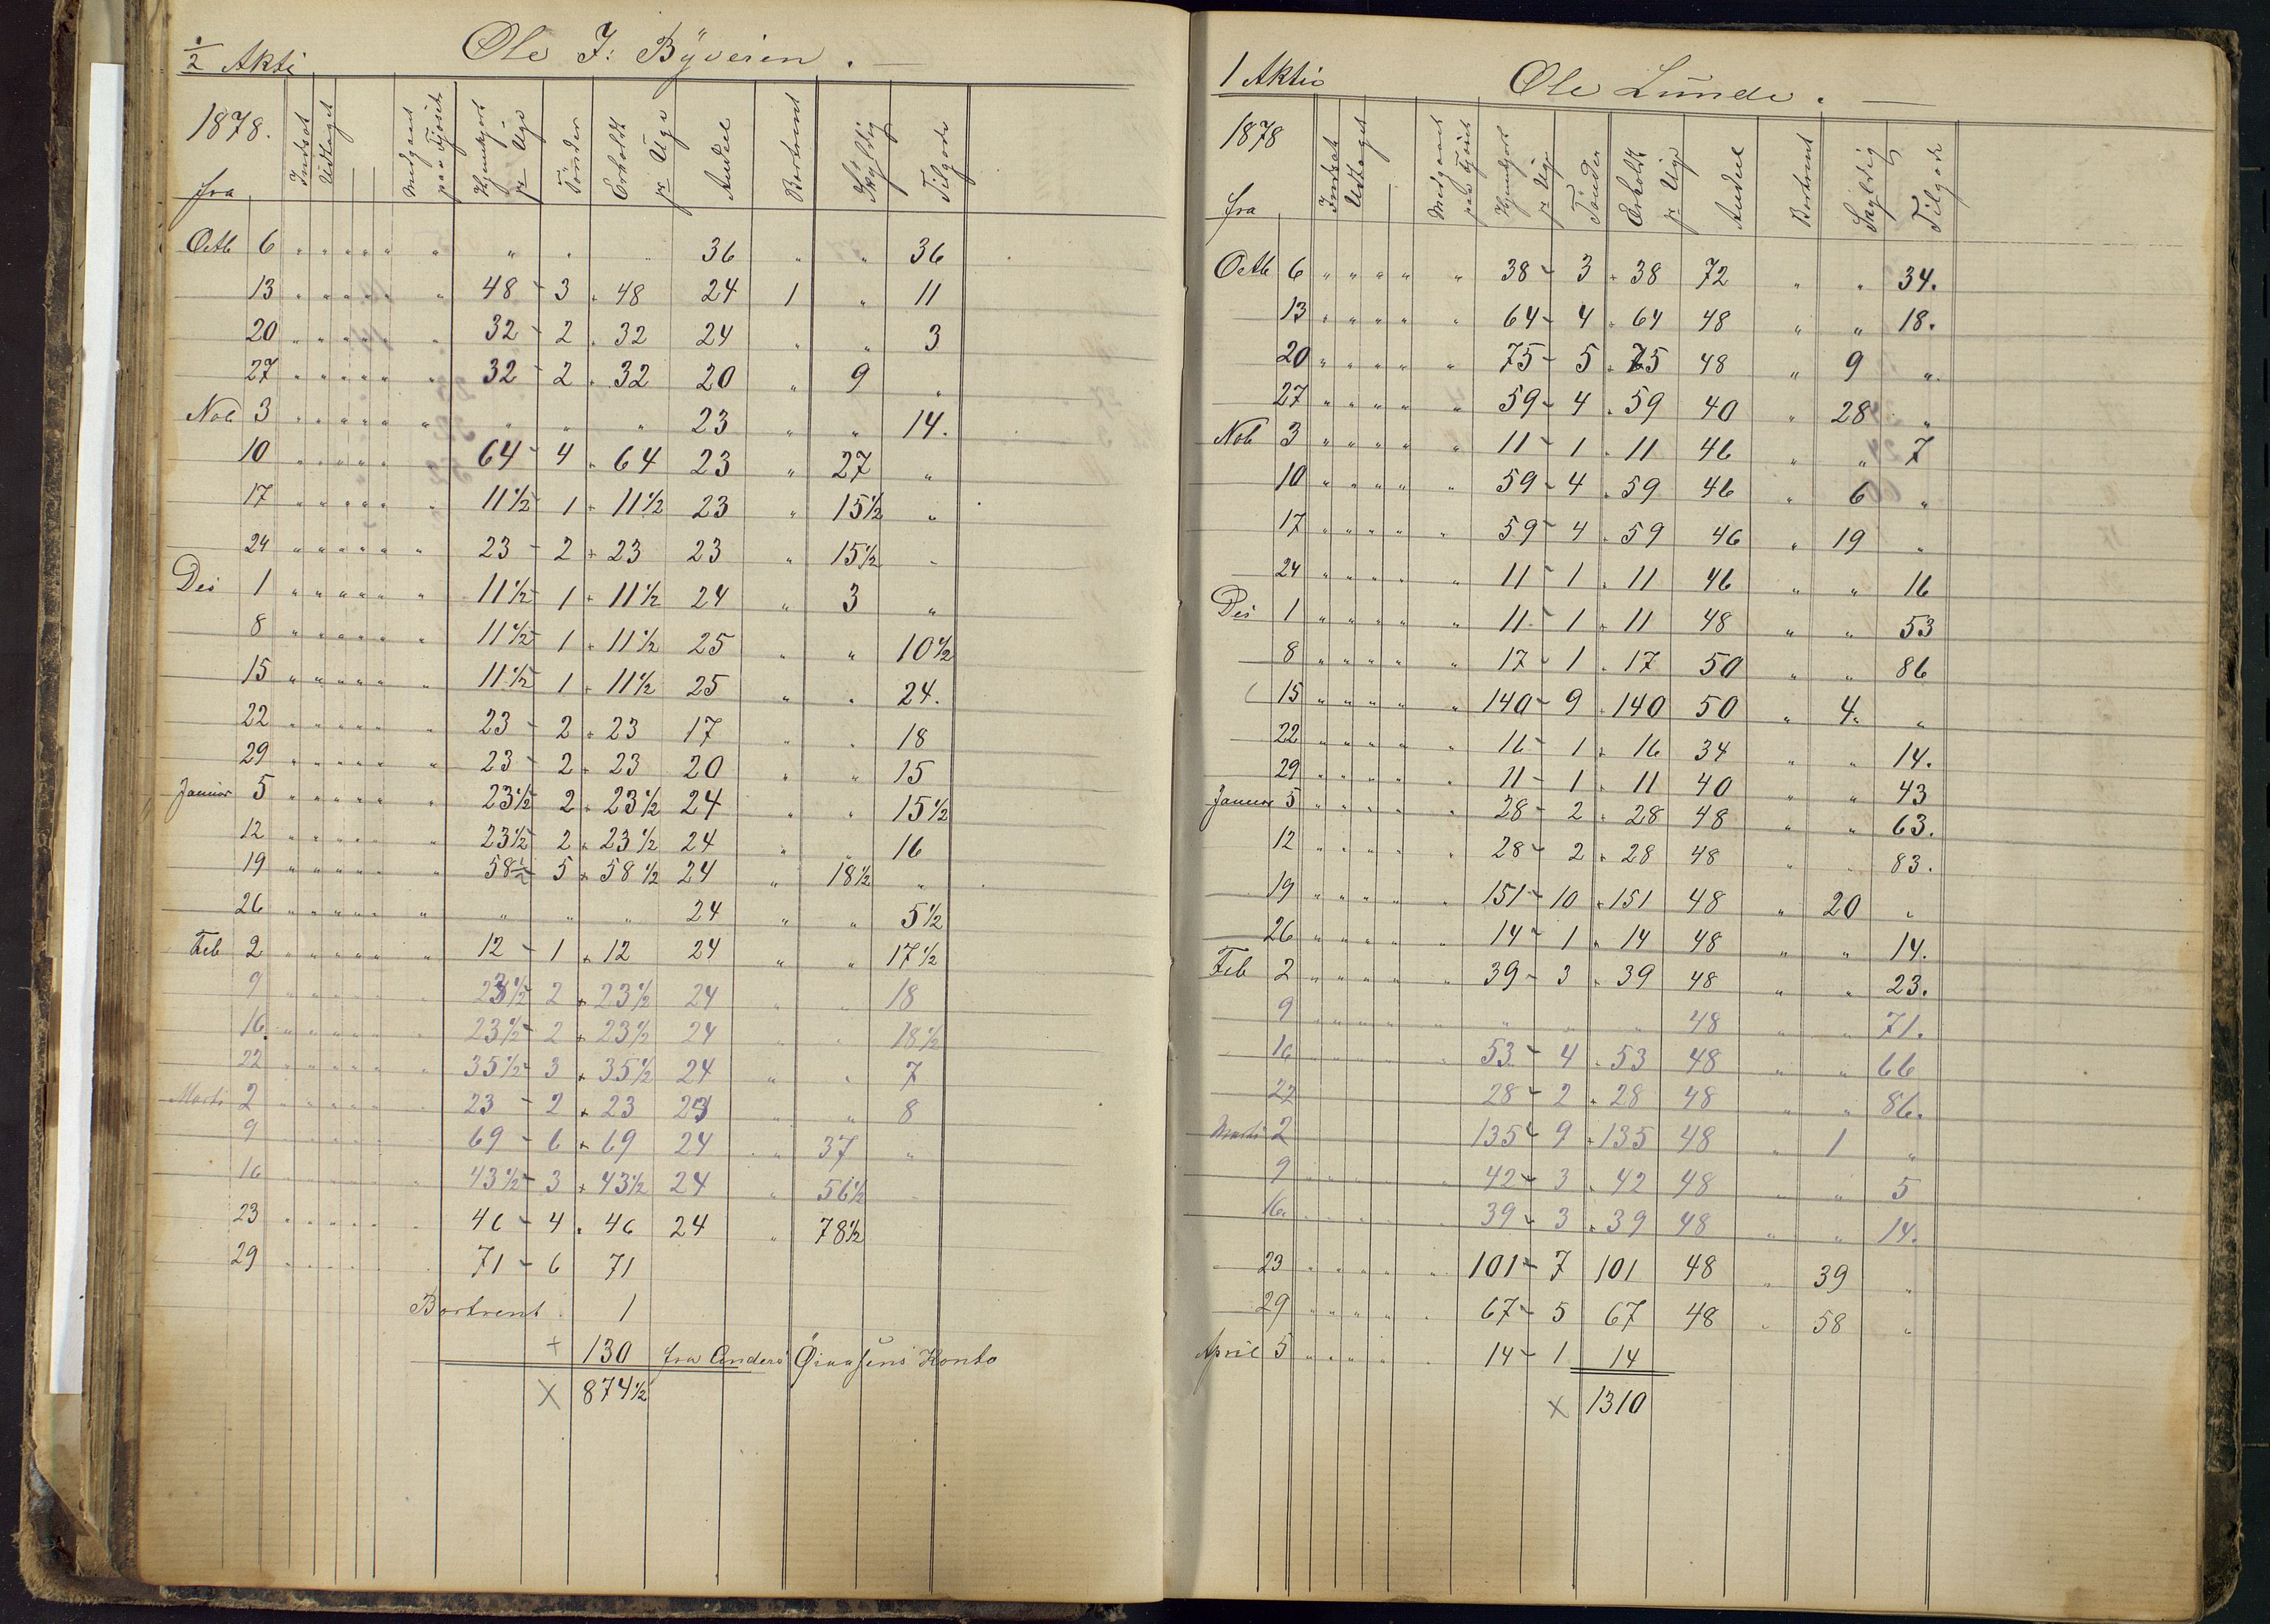 1/2 Aktie Ole J: Byveien. —
1878. fra Indsat Udtaget Medgaaet paa Fjöset Hjemkjört pr Uge Tönder Erholdt pr Uge Andeel Bortrent Skyldig Tilgode
Octb 6 " " " " " " " " " 36 " " 36
13 " " " " " " 48 - 3 " 48 24 1 " 11
20 " " " " " " 32 - 2 " 32 24 " " 3
27 " " " " " " 32 - 2 " 32 20 " 9 "
Nob 3 " " " " " " " " " 23 " " 14.
10 " " " " " " 64 - 4 " 64 23 " 27 "
17 " " " " " " 11 1/2 - 1 " 11 1/2 23 " 15 1/2 "
24 " " " " " " 23 - 2 " 23 23 " 15 1/2 "
Des 1 " " " " " " 11 1/2 - 1 " 11 1/2 24 " 3 "
8 " " " " " " 11 1/2 - 1 " 11 1/2 25 " " 10 1/2
15 " " " " " " 11 1/2 - 1 " 11 1/2 25 " " 24.
22 " " " " " " 23 - 2 " 23 17 " " 18
29 " " " " " " 23 - 2 " 23 20 " " 15
Januar 5 " " " " " " 23 1/2 2 " 23 1/2 24 " " 15 1/2
12 " " " " " " 23 1/2 2 " 23 1/2 24 " " 16
19 " " " " " " 58 1/2 - 5 " 58 1/2 24 " 18 1/2 "
26 " " " " " " " " " 24 " " 5 1/2
Feb 2 " " " " " " 12 - 1 " 12 24 " " 17 1/2
9 " " " " " " 23 1/2 - 2 " 23 1/2 24 " " 18
16 " " " " " " 23 1/2 - 2 " 23 1/2 24 " " 18 1/2
22 " " " " " " 35 1/2 - 3 " 35 1/2 24 " " 7
Marts 2 " " " " " " 23 - 2 " 23 24 " " 8
9 " " " " " " 69 - 6 " 69 24 " 37 "
16 " " " " " " 43 1/2 - 3 " 43 1/2 24 " 56 1/2 "
23 " " " " " " 46 - 4 " 46 24 " 78 1/2
29 " " " " " " 71 - 6 71
Bortrent 1
+ 130 fra Anders Konto
X 874 1/2
1 Aktie Ole Lunde. —
1878 fra Indsat Udtaget Medgaaet paa Fjöset Hjemkjört pr Uge Tönder Erholdt pr Uge Andeel Bortrent Skyldig Tilgode
Octb 6 " " " " " 38 - 3 " 38 72 " " 34.
13 " " " " " 64 - 4 " 64 48 " " 18.
20 " " " " " 75 - 5 " 75 48 " 9 "
27 " " " " " 59 - 4 " 59 40 " 28 "
Nob 3 " " " " " 11 - 1 " 11 46 " " 7
10 " " " " " 59 - 4 " 59 46 " 6 "
17 " " " " " 59 - 4 " 59 46 " 19 "
24 " " " " " 11 - 1 " 11 46 " " 16
Des 1 " " " " " 11 - 1 " 11 48 " " 53
8 " " " " " 17 - 1 " 17 50 " " 86
15 " " " " " 140 - 9 " 140 50 " 4. "
22 " " " " " 16 - 1 " 16 34 " " 14.
29 " " " " " 11 - 1 " 11 40 " " 43
Januar 5 " " " " " 28 - 2 " 28 48 " " 63.
12 " " " " " 28 - 2 " 28 48 " " 83.
19 " " " " " 151 - 10 " 151 48 " 20 "
26 " " " " " 14 - 1 " 14 48 " " 14.
Feb 2 " " " " " 39 - 3 " 39 48 " " 23.
9 " " " " " " " " 48 " " 71.
16 " " " " " 53 - 4 " 53 48 " " 66
22 28 - 2 " 28 48 " " 86.
Marts 2 135 - 9 " 135 48 " 1 "
9 " " " " " 42 - 3 " 42 48 " " 5
16. " " " " " 39 - 3 " 39 48 " " 14.
23 " " " " " 101 - 7 101 48 " 39 "
29 " " " " " 67 - 5 67 48 " 58 "
April 5 " " " " " 14 - 1 14
X 1310